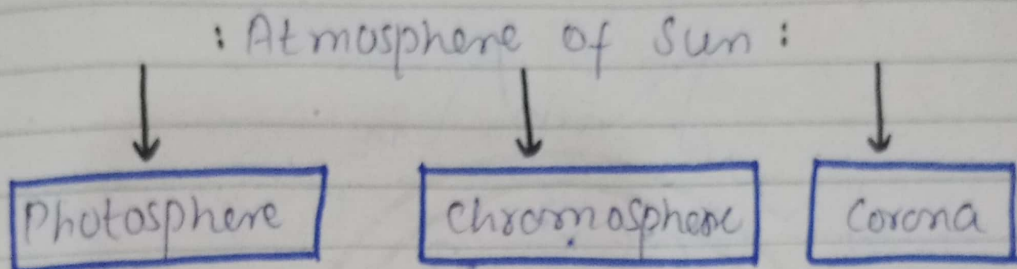 : Atmosphere of Sun :
Photosphere Chromosphere Corona